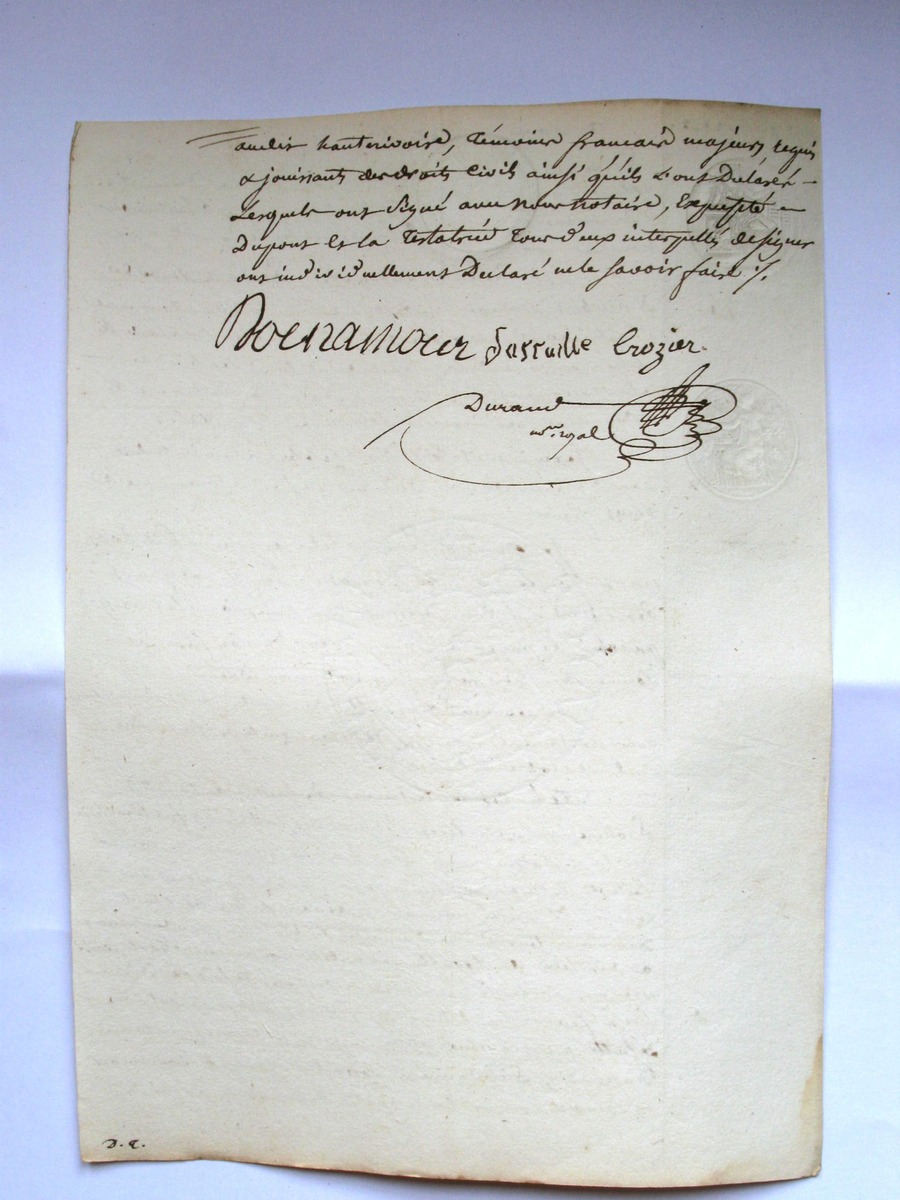 audit hauterivoire, témoins francais majeurs requis
& jouissants des droits Civils ainsi qu'ils L'ont Déclaré –
Lesquels ont signé avec nous notaire, Excepté –
Dupont Et la testatrice tous deux interpellés de signer
ont individuellement Déclaré ne le savoir faire ·/.
Bonnamour Crozier.
Durand
nre. royal
D. t.